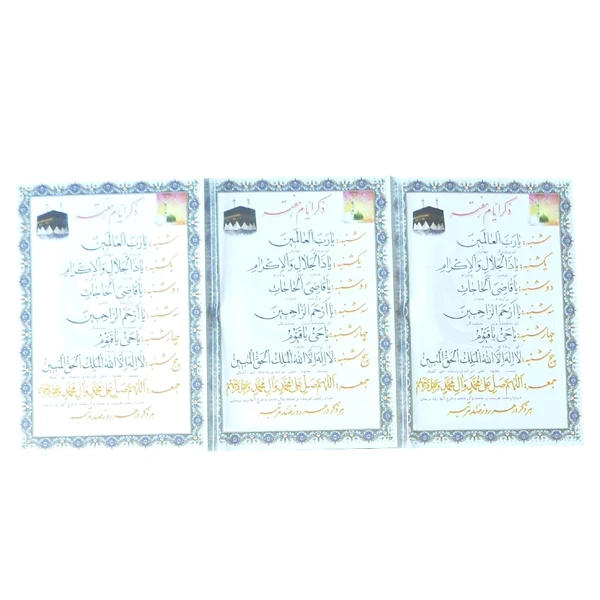 ذکر ایام هفته
شنبه: یا رَبَّ الْعالَمینَ
یکشنبه: یا ذَا الْجَلالِ وَالْاِکْرامِ
دوشنبه: یا قاضِیَ الْحاجاتِ
سه شنبه: یا اَرْحَمَ الرّاحِمینَ
چهارشنبه: یا حَیُّ یا قَیّومُ
پنج شنبه: لا اِلهَ اِلَّا اللهُ الْمَلِکُ الْحَقُّ الْمُبینُ
جمعه: اَللّهُمَّ صَلِّ عَلی مُحَمَّدٍ وَ آلِ مُحَمَّدٍ وَ عَجِّلْ فَرَجَهُمْ
هر ذکر در هر روز صد مرتبه
ذکر ایام هفته
شنبه: یا رَبَّ الْعالَمینَ
یکشنبه: یا ذَا الْجَلالِ وَالْاِکْرامِ
دوشنبه: یا قاضِیَ الْحاجاتِ
سه شنبه: یا اَرْحَمَ الرّاحِمینَ
چهارشنبه: یا حَیُّ یا قَیّومُ
پنج شنبه: لا اِلهَ اِلَّا اللهُ الْمَلِکُ الْحَقُّ الْمُبینُ
جمعه: اَللّهُمَّ صَلِّ عَلی مُحَمَّدٍ وَ آلِ مُحَمَّدٍ وَ عَجِّلْ فَرَجَهُمْ
هر ذکر در هر روز صد مرتبه
ذکر ایام هفته
شنبه: یا رَبَّ الْعالَمینَ
یکشنبه: یا ذَا الْجَلالِ وَالْاِکْرامِ
دوشنبه: یا قاضِیَ الْحاجاتِ
سه شنبه: یا اَرْحَمَ الرّاحِمینَ
چهارشنبه: یا حَیُّ یا قَیّومُ
پنج شنبه: لا اِلهَ اِلَّا اللهُ الْمَلِکُ الْحَقُّ الْمُبینُ
جمعه: اَللّهُمَّ صَلِّ عَلی مُحَمَّدٍ وَ آلِ مُحَمَّدٍ وَ عَجِّلْ فَرَجَهُمْ
هر ذکر در هر روز صد مرتبه